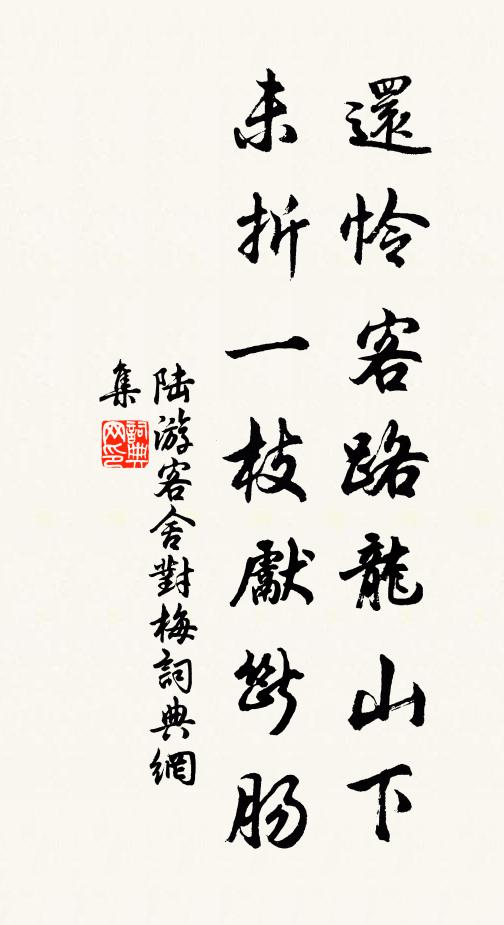 還怜客路龍山下
未折一枝獻斷肠
陆游客舍對梅詞典網
集
詞典
网印